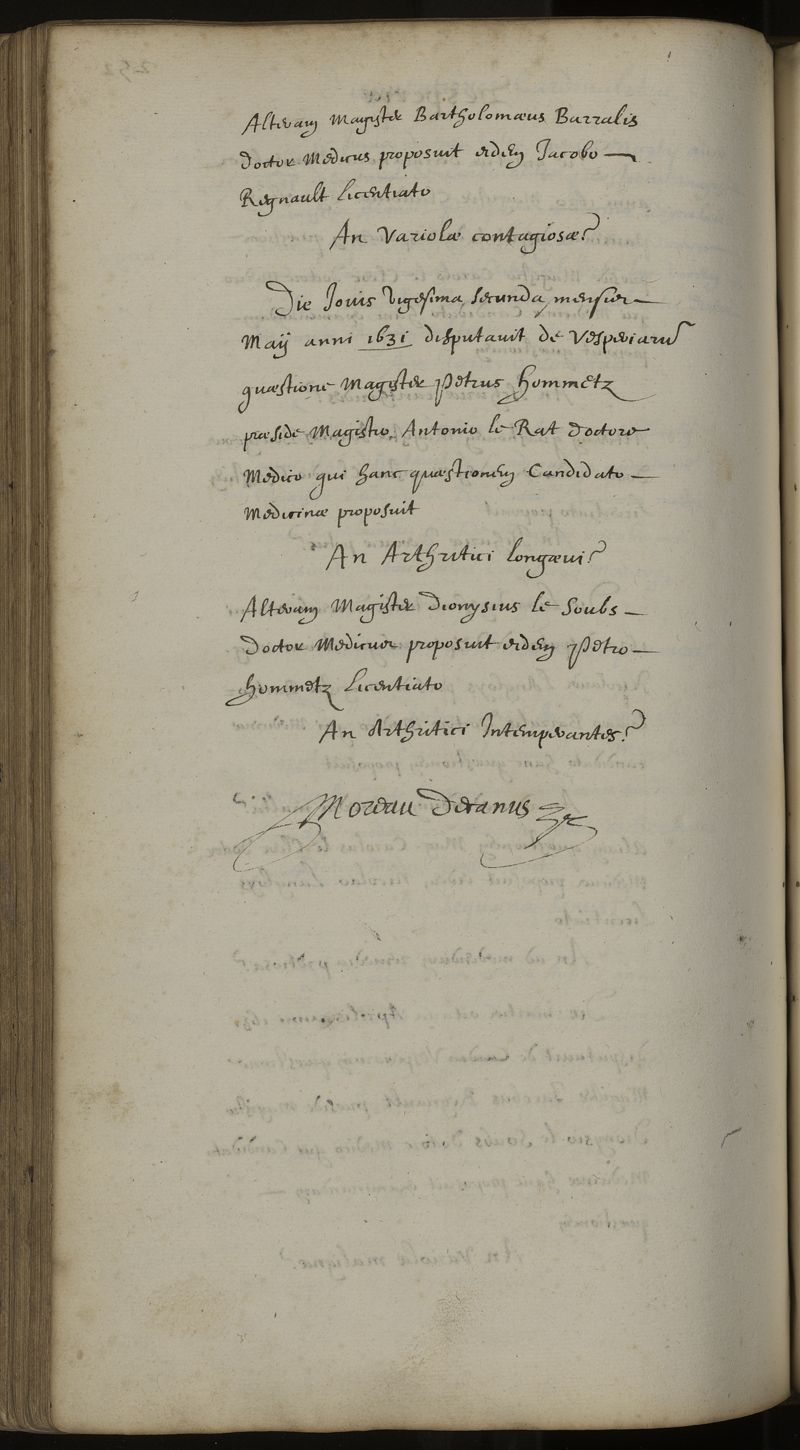 Alteram Magister Bartholomæus Barralis
doctor Medicus proposuit eidem Jacobo
Regnault Licentiato
An Variolæ contagiosæ?
Die Jovis Vigesima secunda mensis
Maij anni 1631 disputavit de Vesperiarũ
quæstione Magister Petrus Hommetz
præside Magistro Antonio le Rat doctore
Medico qui hanc quæstionem Candidato
Medicinæ proposuit
An Arthritici longævi?
Alteram Magister Dionysius le Soubs
doctor Medicus proposuit eidem Petro
Hommetz Licentiato
An Arthritici Intemperantes?
Moreau Decanus